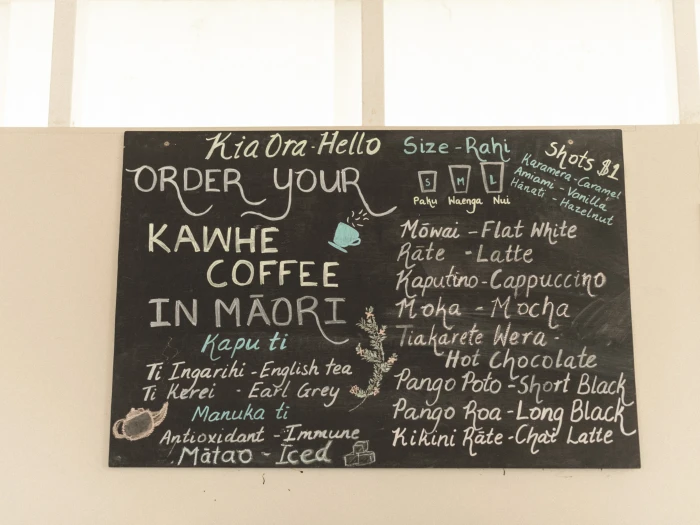 Kia Ora - Hello
ORDER YOUR
KAWHE
COFFEE
IN MĀORI
Kapu ti
Ti Ingarihi - English tea
Ti Kerei - Earl Grey
Manuka ti
Antioxidant - Immune
Mātao - Iced
Size - Rahi
S M L
Paku Waenga Nui
Shots $1
Karamera - Caramel
Amiami - Vanilla
Hānati - Hazelnut
Mōwai - Flat White
Rāte - Latte
Kaputino - Cappuccino
Moka - Mocha
Tiakarete Wera -
Hot Chocolate
Pango Poto - Short Black
Pango Roa - Long Black
Kikini Rāte - Chai Latte